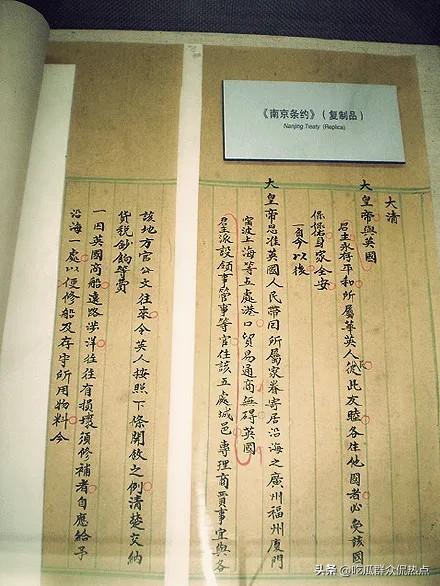 《南京条约》（复制品）
Nanjing Treaty (Replica)
大清
大皇帝與英國
君主永存平和所屬華英人此友睦各住他國者必受該國
保佑身家全安
一自今以後
大皇帝恩准英國人民帶同所屬家眷寄居沿海之廣州福州廈門
甯波上海等五處港口貿易通商無礙英國
君主派設領事管事等官住該五處城邑專理商賈事宜與各
該地方官公文往來令英人按照下條開敘之例清楚交納
貨稅鈔餉等費
一因英國商船遠路涉洋往往有損壞須修補者自應給予
沿海一處以便修船及存守所用物料今
头条 @吃瓜群众侃热点